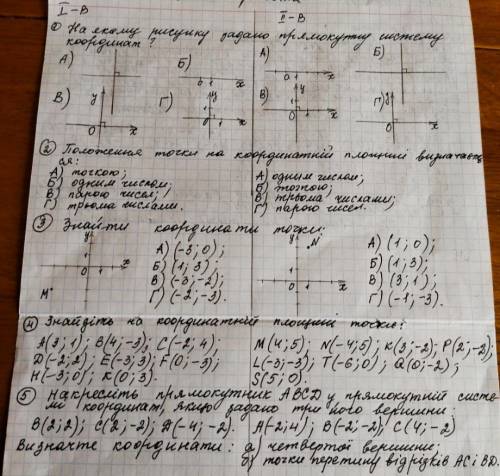 I - В II - В
① На якому рисунку задано прямокутну систему
координат?
А) Б) А) Б)
В) Г) В) Г)
② Положення точки на координатній площині визначається:
А) точкою; А) одним числом;
Б) одним числом; Б) точкою;
В) парою чисел; В) трьома числами;
Г) трьома числами. Г) парою чисел.
③ Знайти координати точки:
А) (-3; 0); N А) (1; 0);
Б) (1; 3). Б) (1; 3);
В) (-3; -2); В) (3; 1);
M Г) (-2; -3). Г) (-1; -3).
④ Знайдіть на координатній площині точки:
A(3; 1); B(4; -3); C(-2; 4); M(4; 5); N(-4; 5); K(3; -2); P(2; -2).
D(-2; 2); E(-3; 3); F(0; -3); L(-3; -3); T(-6; 0); Q(0; -2);
H(-3; 0); K(0; 3). S(5; 0).
⑤ Накресліть прямокутник ABCD у прямокутній систе-
мі координат, якщо задано три його вершини:
B(2; 2); C(2; -2); D(-4; -2). A(-2; 4); B(-2; -2); C(4; -2)
Визначте координати: а) четвертої вершини;
б) точки перетину відрізків AC і BD.